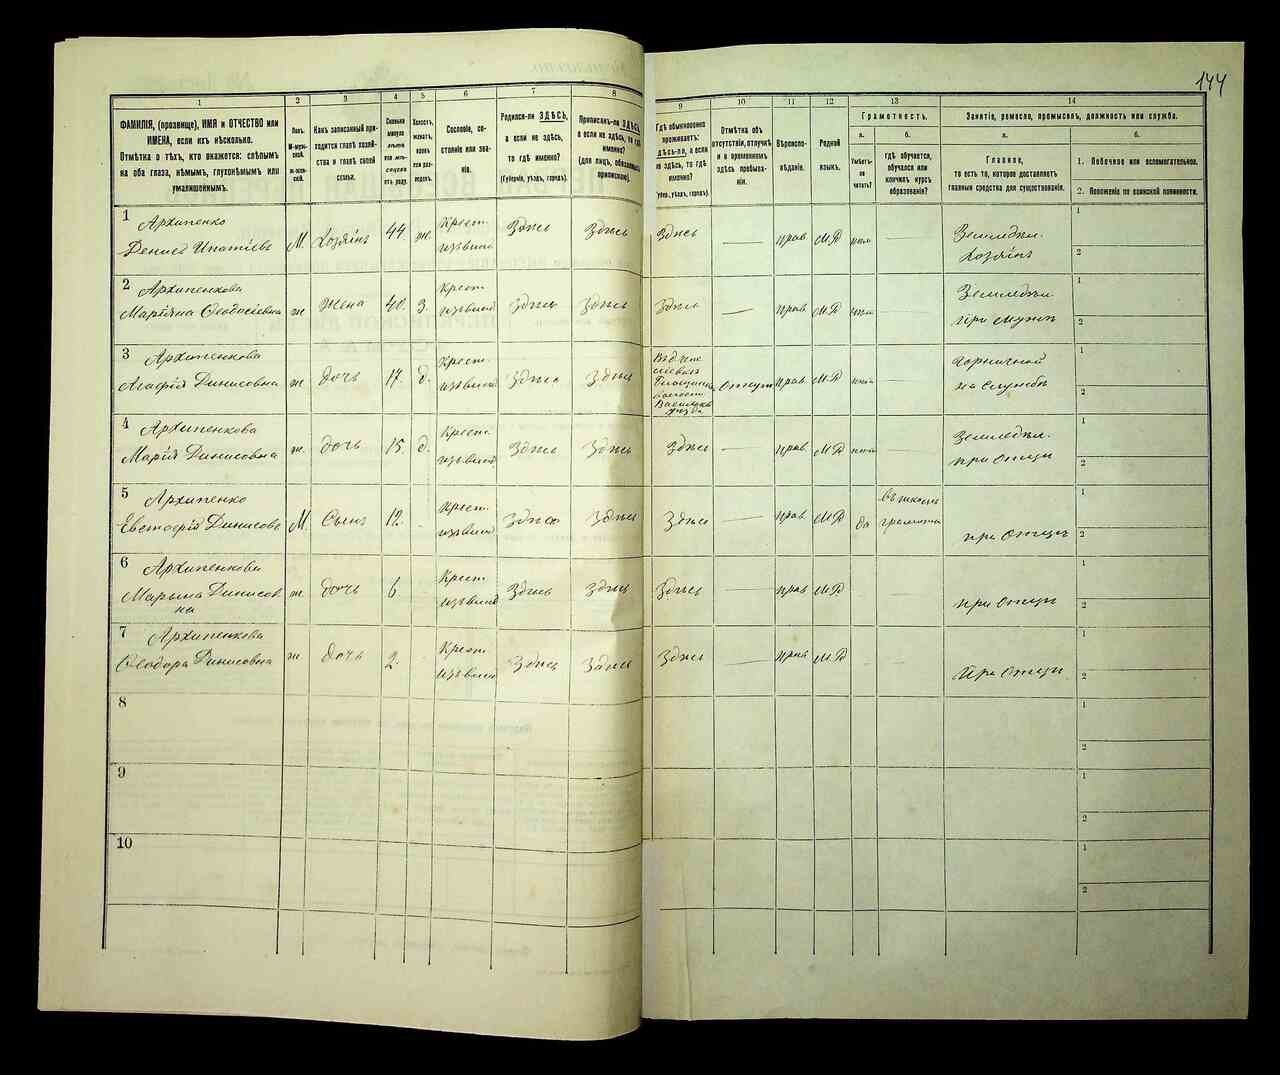 144
1
2
3
4
5
6
7
8
9
10
11
12
13
14
ФАМИЛІЯ, (прозвище), ИМЯ и ОТЧЕСТВО или
ИМЕНА, если ихъ нѣсколько.
Отмѣтка о тѣхъ, кто окажется: слѣпымъ
на оба глаза, нѣмымъ, глухонѣмымъ или
умалишеннымъ.
Полъ.
М-мужской.
Ж-женскій.
Какъ записанный при-
ходится главѣ хозяй-
ства и главѣ своей
семьи.
Сколько
минуло
лѣтъ
или мѣ-
сяцевъ
отъ роду.
Холостъ,
женатъ,
вдовъ
или раз-
веденъ.
Сословіе, со-
стояніе или зва-
ніе.
Родился-ли ЗДѢСЬ,
а если не здѣсь,
то гдѣ именно?
(Губернія, уѣздъ, городъ).
Приписанъ-ли ЗДѢСЬ,
а если не здѣсь, то гдѣ
именно?
(для лицъ, обязанныхъ
припискою).
Гдѣ обыкновенно
проживаетъ:
здѣсь-ли, а если
не здѣсь, то гдѣ
именно?
(Губер., уѣздъ, городъ).
Отмѣтка объ
отсутствіи, отлучкѣ
и о временномъ
здѣсь пребыва-
ніи.
Вѣроиспо-
вѣданіе.
Родной
языкъ.
Грамотность.
а.
б.
Умѣетъ-
ли
читать?
гдѣ обучается,
обучался или
кончилъ курсъ
образованія?
Занятіе, ремесло, промыселъ, должность или служба.
а.
б.
Главное,
то есть то, которое доставляетъ
главныя средства для существованія.
1. Побочное или вспомогательное.
2. Положеніе по воинской повинности.
1
Архипенко
Денисъ Ипатіевъ
М. Хозяинъ 44. ж. Крест.
Здѣсь Здѣсь Здѣсь — прав. М.Р.
Земледѣл.
Хозяинъ
1
2
2
Архипенкова
Маріяна Ѳеодосіевна
ж жена 40. з. Крест.
Здѣсь Здѣсь Здѣсь — прав М.Р.
Земледѣл
При мужѣ
1
2
3
Архипенкова
Агафія Динисовна
ж. дочь 17. д. Крест.
Здѣсь Здѣсь
Васильк.
уѣзда
Отсут прав. М.Р.
Горничной
на службѣ
1
2
4
Архипенкова
Марія Динисовна
ж. дочь 15. д. Крест.
Здѣсь Здѣсь Здѣсь — прав. М.Р.
Земледѣл.
при Отцѣ
1
2
5
Архипенко
Евстафій Динисовъ
М. Сынъ 12. Крест.
Здѣсь Здѣсь Здѣсь — прав. М.Р. да
въ школѣ
грамоты
при Отцѣ
1
2
6
Архипенкова
Марьяна Динисов
на
ж. дочь 6 Крест.
Здѣсь Здѣсь Здѣсь — прав М.Р.
при Отцѣ
1
2
7
Архипенкова
Ѳеодора Динисовна
ж дочь 2. Крест.
Здѣсь Здѣсь Здѣсь — прав М.Р.
При Отцѣ
1
2
8
1
2
9
1
2
10
1
2